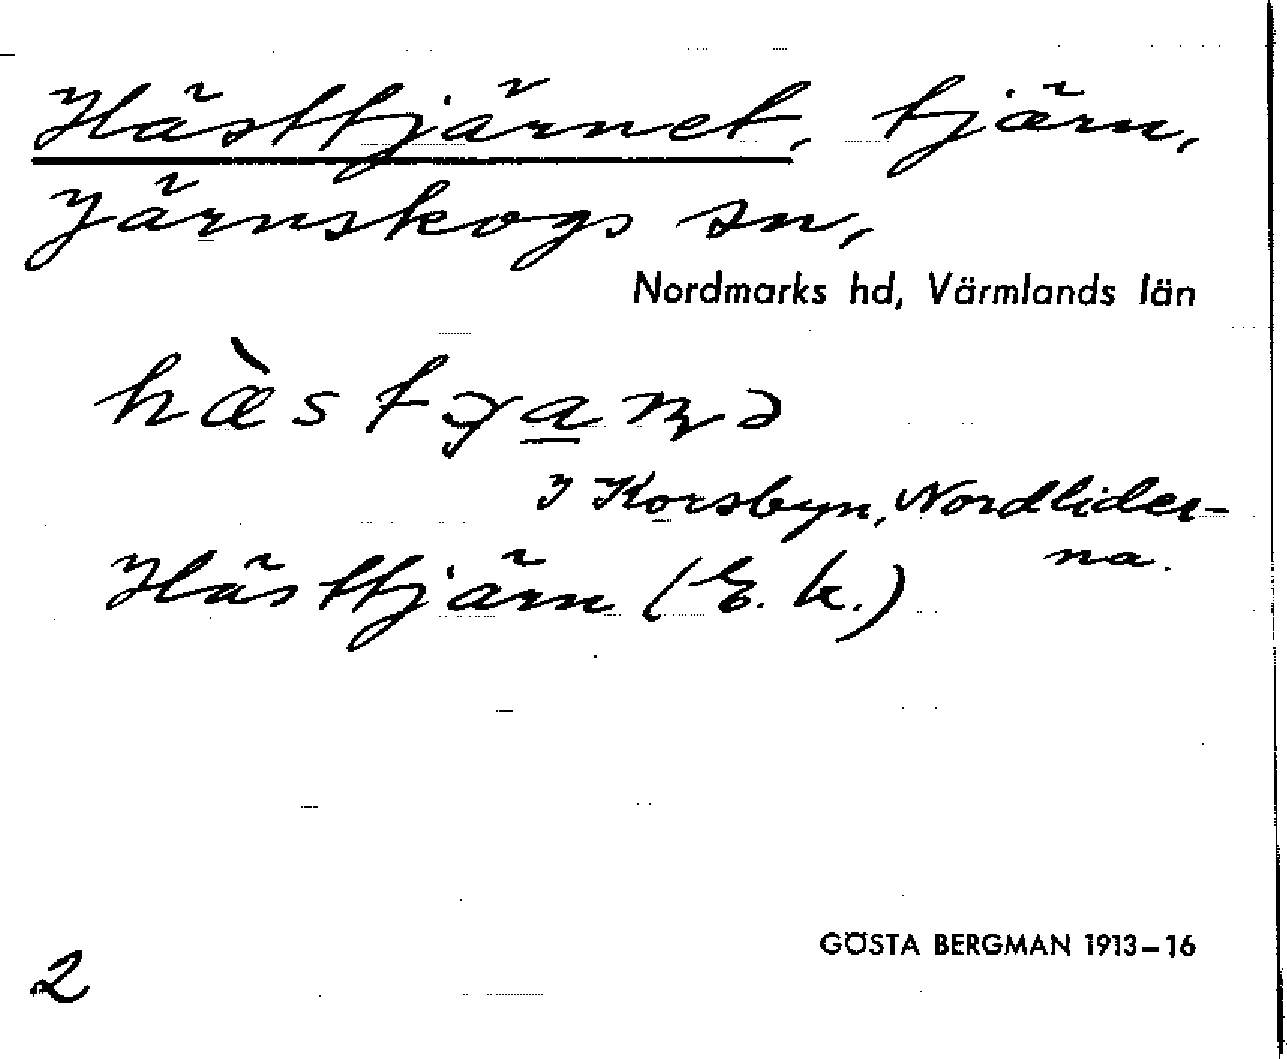 Hästtjärnet, tjärn,
Järnskogs sn,
Nordmarks hd, Värmlands län
I Korsbyn, Nordlider-
na.
Hästtjärn (E. k.)
GÖSTA BERGMAN 1913–16
2